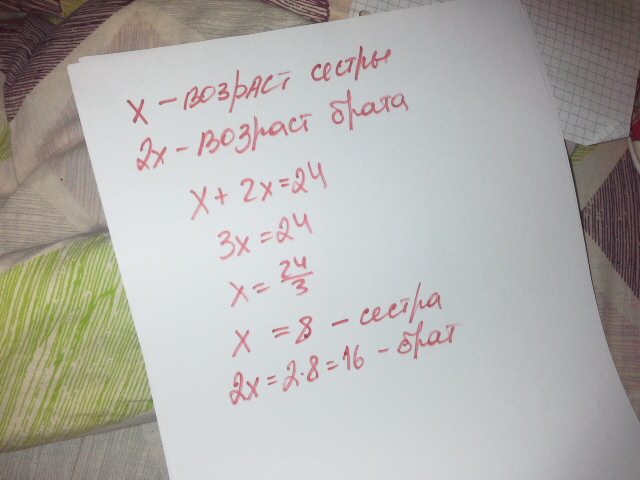 x – возраст сестры
2x – возраст брата
x + 2x = 24
3x = 24
x = 24/3
x = 8 – сестра
2x = 2·8 = 16 – брат